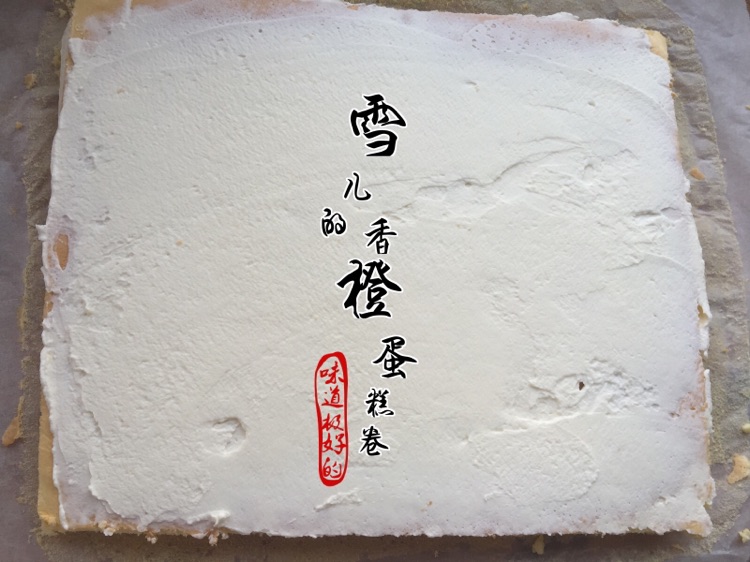 雪儿的香橙蛋糕卷
味道极好的